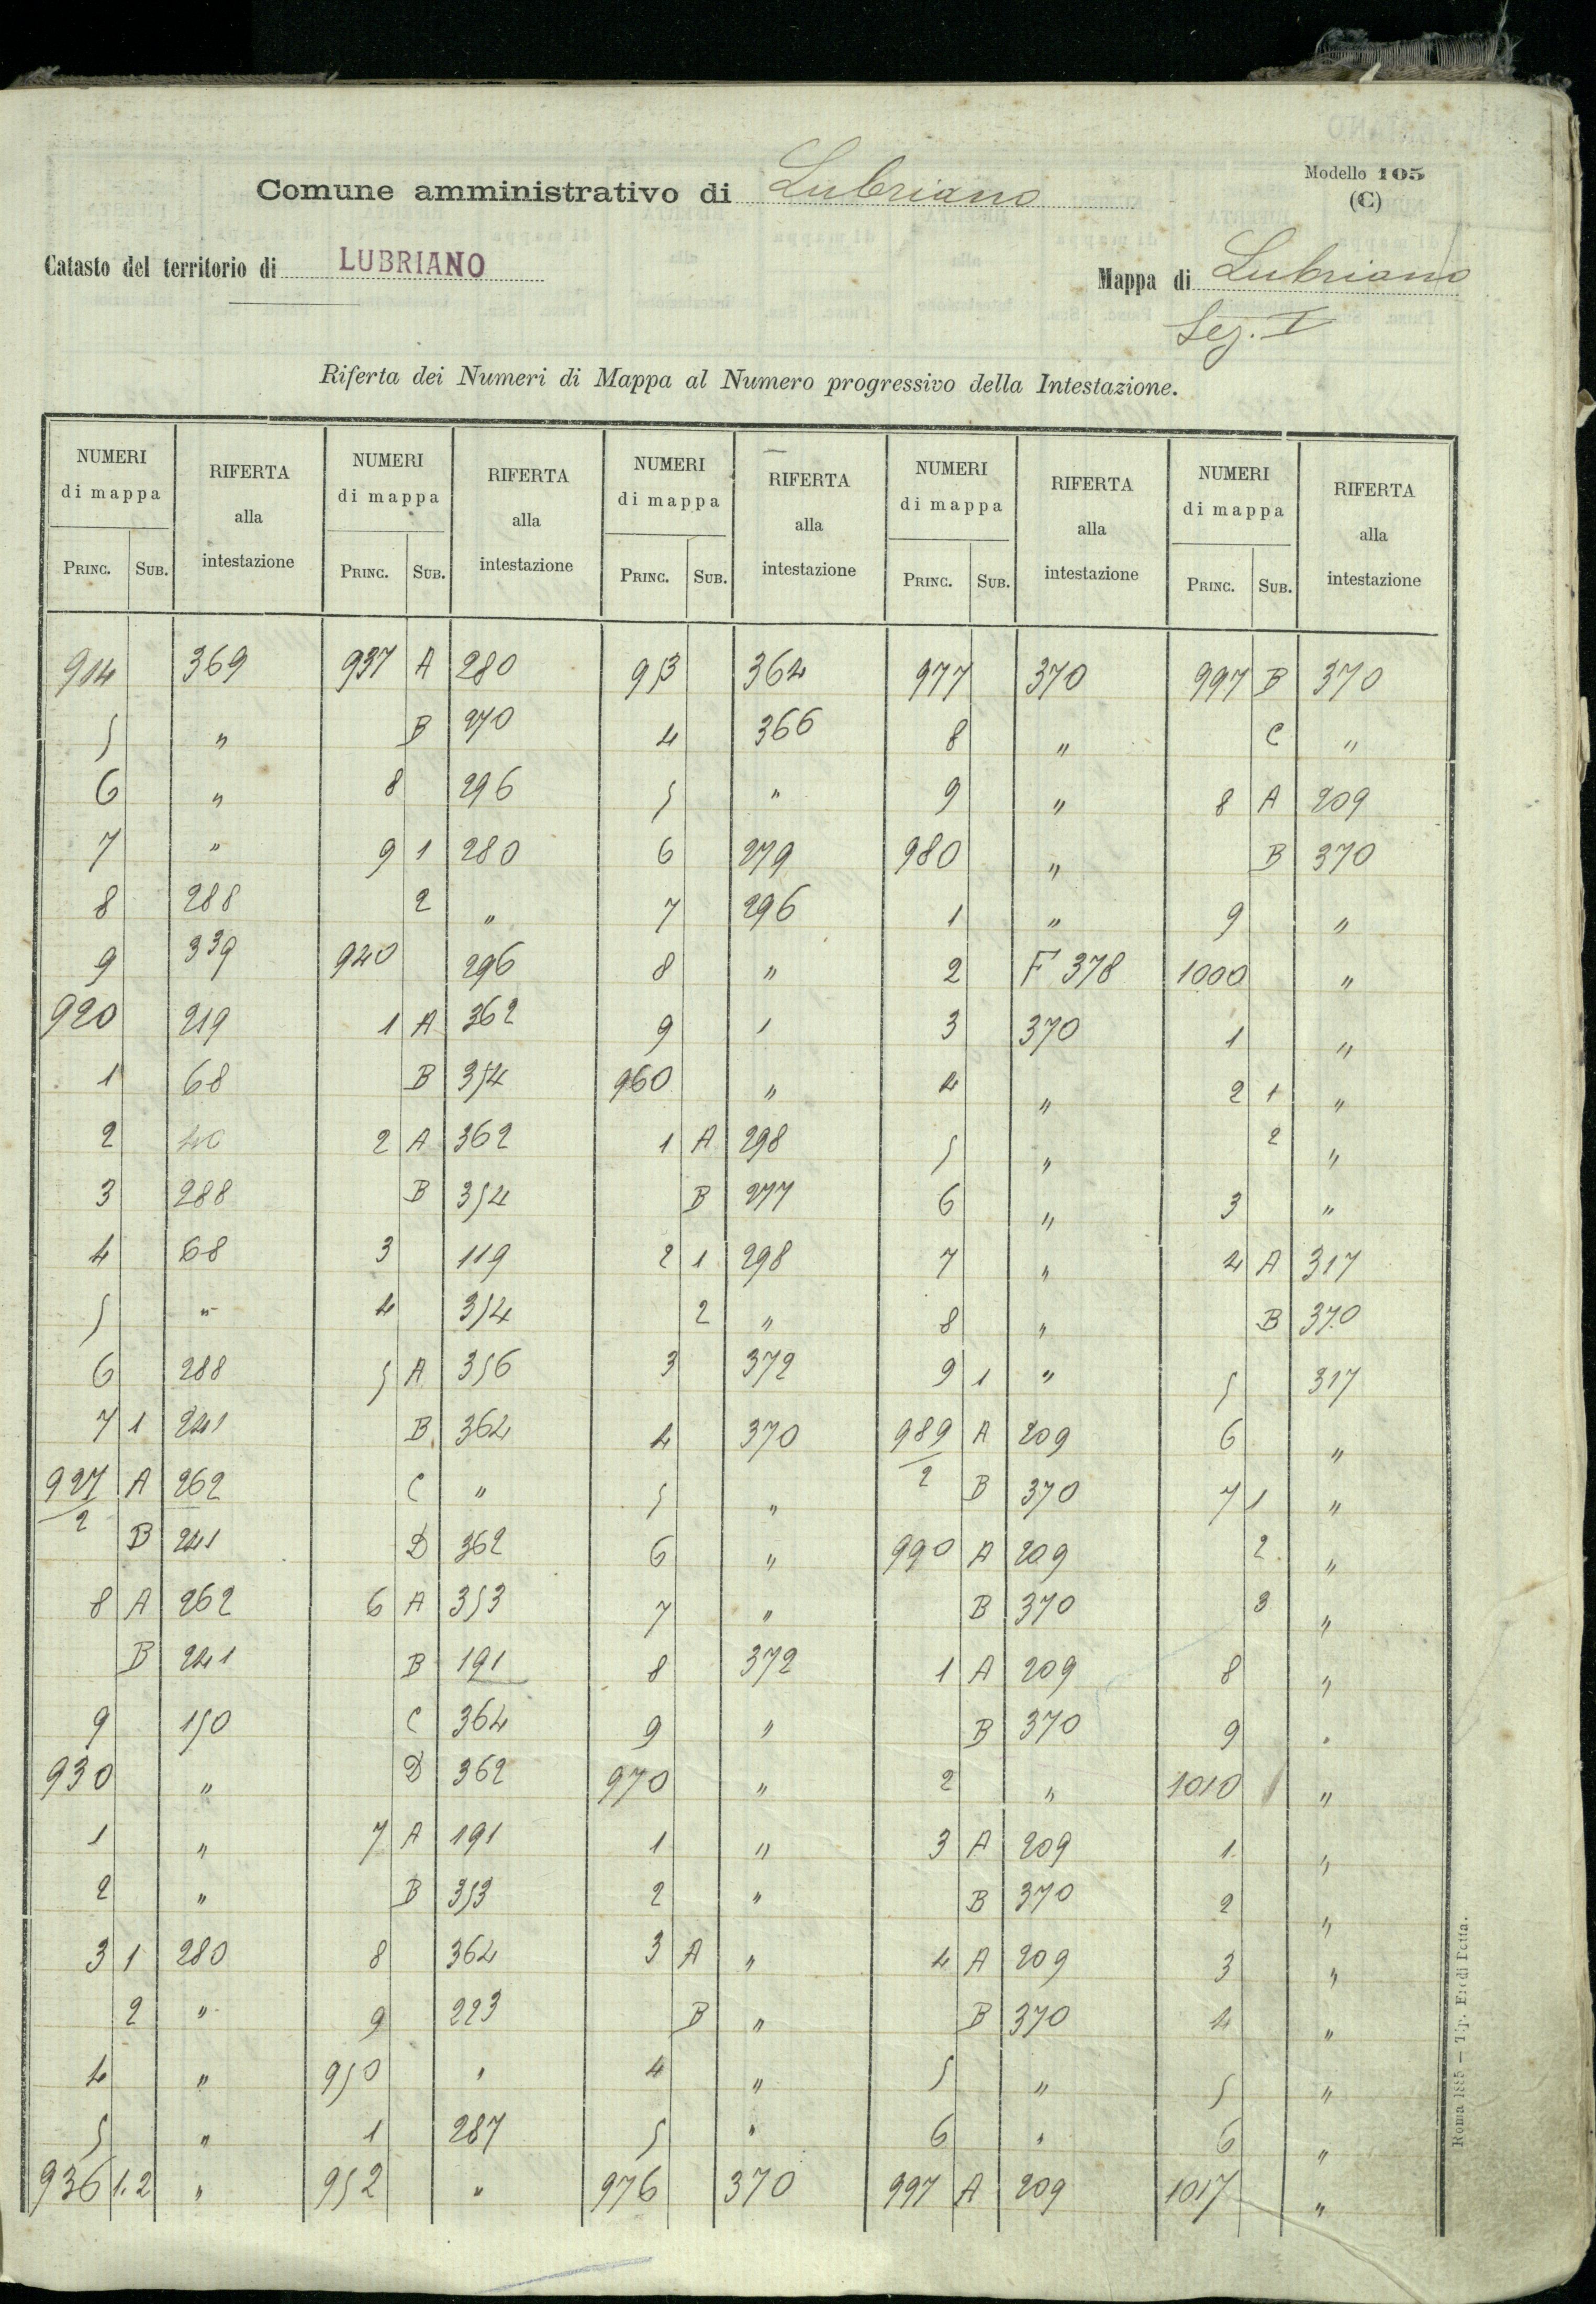 Comune amministrativo di Lubriano
Modello 105
(C)
Catasto del territorio di LUBRIANO
Mappa di Lubriano
Sez. I
Riferta dei Numeri di Mappa al Numero progressivo della Intestazione.
NUMERI di mappa RIFERTA alla intestazione NUMERI di mappa RIFERTA alla intestazione NUMERI di mappa RIFERTA alla intestazione NUMERI di mappa RIFERTA alla intestazione NUMERI di mappa RIFERTA alla intestazione
PRINC. SUB. PRINC. SUB. PRINC. SUB. PRINC. SUB. PRINC. SUB.
914 369 937 A 280 953 364 977 370 997 B 370
5 " B 270 4 366 8 " C "
6 " 8 296 5 " 9 " 8 A 209
7 " 9 1 280 6 279 980 " B 370
8 288 2 " 7 296 1 " 9 "
9 339 940 296 8 " 2 F 378 1000 "
920 219 1 A 362 9 " 3 370 1 "
1 68 B 354 960 " 4 " 2 1 "
2 40 2 A 362 1 A 298 5 " 2 "
3 288 B 354 B 277 6 " 3 "
4 68 3 119 2 1 298 7 " 4 A 317
5 " 4 354 2 " 8 " B 370
6 288 5 A 356 3 372 9 1 " 5 317
7 1 241 B 364 4 370 989/2 A 209 6 "
927/2 A 262 C " 5 " B 370 7 1 "
B 241 D 362 6 " 990 A 209 2 "
8 A 262 6 A 353 7 " B 370 3 "
B 241 B 191 8 372 1 A 209 8 "
9 150 C 364 9 " B 370 9 "
930 " D 362 970 " 2 " 1010 "
1 " 7 A 191 1 " 3 A 209 1 "
2 " B 353 2 " B 370 2 "
3 1 280 8 364 3 A " 4 A 209 3 "
2 " 9 223 B " B 370 4 "
4 " 950 " 4 " 5 " 5 "
5 " 1 287 5 " 6 " 6 "
936 1.2 " 952 " 976 370 997 A 209 1017 "
Roma 1885 — Tip. Eredi Botta.